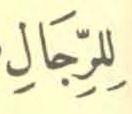 لِلرِّجَالِ